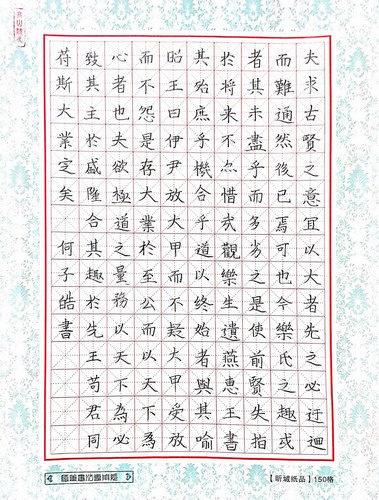 夫求古賢之意宜以大者先之必迂迴
而難通然後已焉可也今樂氏之趣或
者其未盡乎而多劣之是使前賢失指
於将来不尒惜哉觀樂生遺燕惠王書
其殆庶乎機合乎道以終始者與其喻
昭王曰伊尹放大甲而不疑大甲受放
而不怨是存大業於至公而以天下為
心者也夫欲極道之量務以天下為必
致其主於盛隆合其趣於先王苟君同
苻斯大業定矣 何子皓書
【昕城纸品】150格